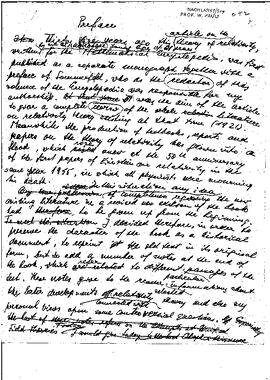 NACHLASS
PROF. W. PAULI
Preface
article on the
Now thirty five years ago the theory of relativity,
written for the Mathematical Encyclopedia was first
published as a separate monograph together with a
preface of Sommerfeld, who as the redactor of this
volume of the Encyclopedia was responsible for my
authorship. It was the aim of the article
to give a complete review of the whole literature
on relativity theory existing at that time (1921).
Meanwhile the production of textbooks, reports and
papers on the theory of relativity has grown into a
flood, which rose anew at the 50th anniversary
of the first papers of Einstein on relativity in the
same year 1955, in which all physicists were mourning
his death.
In this situation any idea
of completeness regarding the now
existing literature in a revised new edition of the book
had to be given up from the beginning.
I decided therefore, in order to
preserve the character of the book as a historical
document, to reprint the old text in its original
form, but to add a number of notes at the end of
the book, which refer to different passages of the
text. These notes give to the reader information about
the later developments connected with relativity theory and also my
personal views upon some controversial questions.